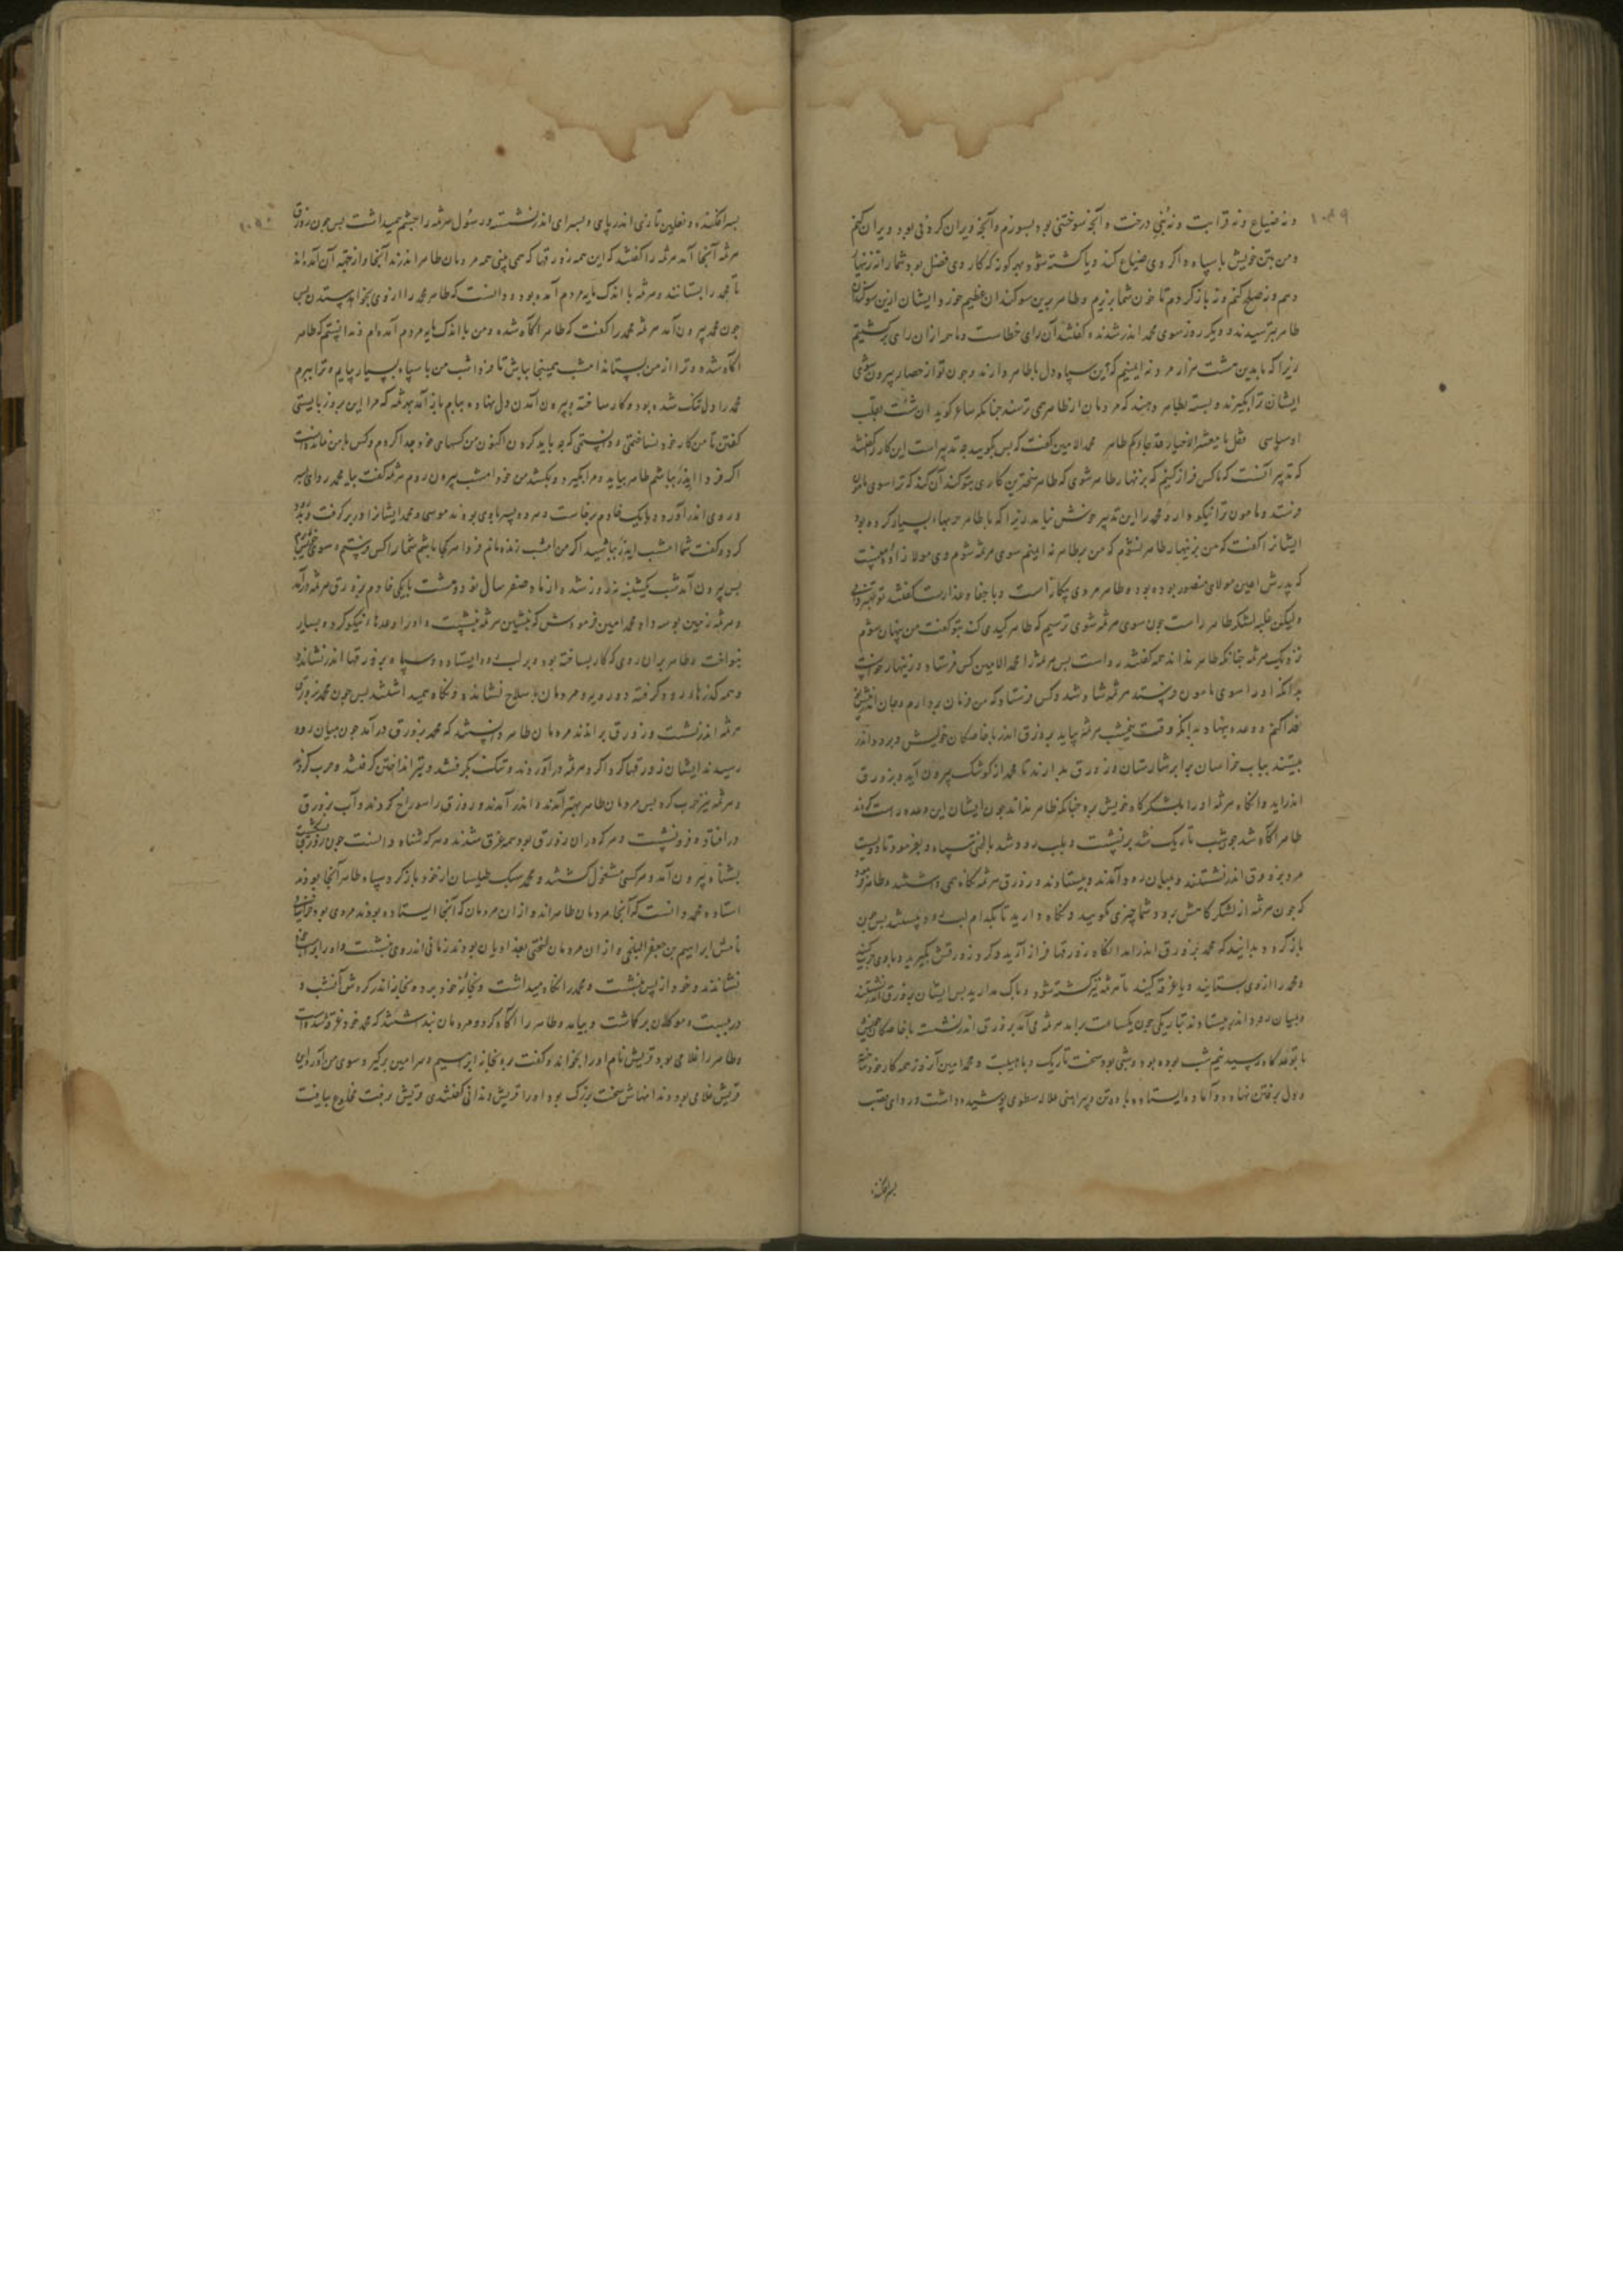 و نه ضیاع و نه قرابت و نه بنج درخت و آنجه سوختنی بود بسوزم و آنجه ویران کردنی بود ویران کنم
و من بتن خویش با سپاه و اکر وی ضیاع کند و یا کشته شود بهر کونه که کار وی فضل بود شما را نه زنهار
دهم و نه صلح کنم و نه باز کردم تا خون شما بریزم و طاهر برین سوکندان عظیم خورد و ایشان ازین سوکندان
طاهر بترسیدند و دیکر روز سوی محمد اندر شدند و کفتند آن رای خطاست و ما همه ازان رای برکشتیم
زیرا که ما بدین هشت هزار مرد نه ایمنیم که این سپاه دل با طاهر دارند و جون تو از حصار بیرون شوی
ایشان ترا بکیرند و بسته بطاهر دهند که مردمان از طاهر همی ترسند جنانکه شاعر کوید
محمد الامین کفت که بس بکویید جه تدبیر است این کار کفتند
که تدبیر آنست که ما کس فراز کنیم که بزنهار طاهر شوی که طاهر سختترین کاری بتو کند آن کند که ترا سوی مامون
فرستد و مامون ترا نیکو دارد و محمد را این تدبیر خوش نیامد زیرا که با طاهر حربها بسیار کرده بود
ایشانرا کفت که من بزنهار طاهر نشوم که من بر طاهر نه ایمنم سوی هرثمه شوم
که پدرش اعین مولای منصور بوده بود و طاهر مردی بیکانه است و با جفا و غدارست کفتند تو بهتر دانی
ولیکن غلبه لشکر طاهر راست جون سوی هرثمه شوی ترسیم که طاهر کیدی کند بتو کفت من پنهان شوم
نزدیک هرثمه جنانکه طاهر نداند همه کفتند رواست بس هرثمه را محمد الامین کس فرستاد و زینهار خواست
بدانکه او را سوی مامون فرستد هرثمه شاد شد و کس فرستاد که من فرمان بردارم و جان اندر پیش
فدا کنم و وعده بنهاد بدانکه وقت نیمشب هرثمه بیاید بزورق اندر با خاصکان خویش و برود اندر
بیستند بباب خراسان برابر شارستان و زورق بدارند تا محمد از کوشک بیرون آید و بزورق
اندر اید و انکاه هرثمه او را بلشکرکاه خویش برد جنانکه طاهر نداند جون ایشان این وعده راست کردند
طاهر اکاه شد جون شب تاریک شد برنشست و بلب رود شد با لختی سپاه و بفرمود تا دویست
مرد بزورق اندر نشستند و بمیان رود آمدند و بیستادند و زورق هرثمه نکاه همی داشتند و طاهر فرمود
که جون هرثمه از لشکرکاهش برود شما جیزی مکویید و نکاه دارید تا بکدام لب رود بیستد بس جون
باز کردد بدانید که محمد بزورق اندر امد انکاه زورقها فراز آرید و کرد زورقش بکیرید و با وی حرب کنید
و محمد را از وی بستانید و یا غرقه کنید تا هرثمه نیز کشته شود و باک مدارید بس ایشان بزورق اندر نشستند
و بمیان رود اندر بیستادند بتاریکی جون یکساعت برامد هرثمه می آمد بزورق اندر نشست با خاصکان خویش
تا بوعدکاه رسید نیم شب بوده بود و شبی بود سخت تاریک و با هیبت و محمد امین آن روز همه کار خود ساخته
و دل برفتن نهاده و آماده ایستاده و بارو تن و پیراهنی پوشیده داشت و ردای بقصب
بسر افکنده
۱۰۴۹
بسر افکنده و نعلین تازی اندر پای و بسرای اندر نشسته و رسول هرثمه را جشم همیداشت بس جون زورق
هرثمه آنجا آمد هرثمه را کفتند که این همه زورقها که همی بینی همه مردمان طاهر اندرند آنجا و از جهة آن آمده اند
تا محمد را بستانند و هرثمه با اندک مایه مردم آمده بود و دانست که طاهر محمد را از وی بخواهد ستدن بس
جون محمد بیرون آمد هرثمه محمد را کفت که طاهر اکاه شده و من با اندک مایه مردم آمده ام و ندانستم که طاهر
اکاه شده و ترا از من بستاند امشب همینجا بباش تا فردا شب من با سپاه بسیار بیایم و ترا ببرم
محمد را دل تنک شده بود و کار ساخته و بیرون آمدن دل نهاده بیام باز آمد بهرثمه که مرا این بروز بایستی
کفتن تا من کار خود نساختمی و دانستمی که جه باید کردن اکنون من کسهای خود جدا کردم و کس با من نمانده است
اکر فردا ایذر بباشم طاهر بیاید و مرا بکیرد و بکشد من خود امشب بیرون روم هرثمه کفت بیا محمد ردای بسر
و روی اندر آورد و با یک خادم برخاست و مر دو پسر با وی بودند موسی و محمد ایشانرا در بر کرفت و بدرود
کرد و کفت شما امشب ایذر بباشید اکر من امشب زنده مانم فردا هر کجا باشم شما را کس فرستم و سوی خویش آرم
بس بیرون آمد شب یکشنبه نه روز شده از ماه صفر سال نود و هشت با یکی خادم بزورق هرثمه درآمد
و هرثمه زمین بوسه داد محمد امین فرمودش که بنشین هرثمه بنشست و او را وعدها نیکو کرد و بسیار
بنواخت و طاهر بران روی که کار بساخته بود و بر لب رود ایستاده و سپاه بر زورقها اندر نشانده
و همه کذرها رود کرفته دو رویه و مردمان با سلاح نشانده و نکاه همیداشتند بس جون محمد بزورق
هرثمه اندر نشست و زورق براندند مردمان طاهر دانستند که محمد بزورق درآمد جون میان رود
رسیدند ایشان زورقها کرداکرد هرثمه درآوردند و تنک بکرفتند و تیر انداختن کرفتند و حرب کردند
و هرثمه نیز حرب کرد بس مردمان طاهر بهتر آمدند و اندر آمدند و زورق را سوراخ کردند و آب بزورق
در افتاد و فرو نشست و هر که در آن زورق بود همه غرق شدند و هر که شناه دانست جون
بشناه بیرون آمد و هر کسی مشغول کشتند و محمد سبک طیلسان از خود باز کرد و سپاه طاهر آنجا بودند
استاده محمد دانست که آنجا مردمان طاهراند و از ان مردمان که آنجا ایستاده بودند مردی بود خراسانی
نامش ابراهیم بن جعفر البلخی و از ان مردمان لختی بغدادیان بودند زمانی اندر وی نشست و او را بر اسب
نشاندند و خود از پس نشست و محمد را نکاه میداشت و بخانه خود برد و بخانه اندر کردش آن شب و
در ببست و موکلان بر کماشت و بیامد و طاهر را اکاه کرد و مردمان پنداشتند که محمد خود غرقه شده است
و طاهر را غلامی بود قریش نام او را بخواند و کفت رو بخانه ابراهیم و سر امین برکیر و سوی من آور و این
قریش غلامی بود دندانهاش سخت بزرک بود او را قریش دندانی کفتندی قریش رفت مخلوع بیافت